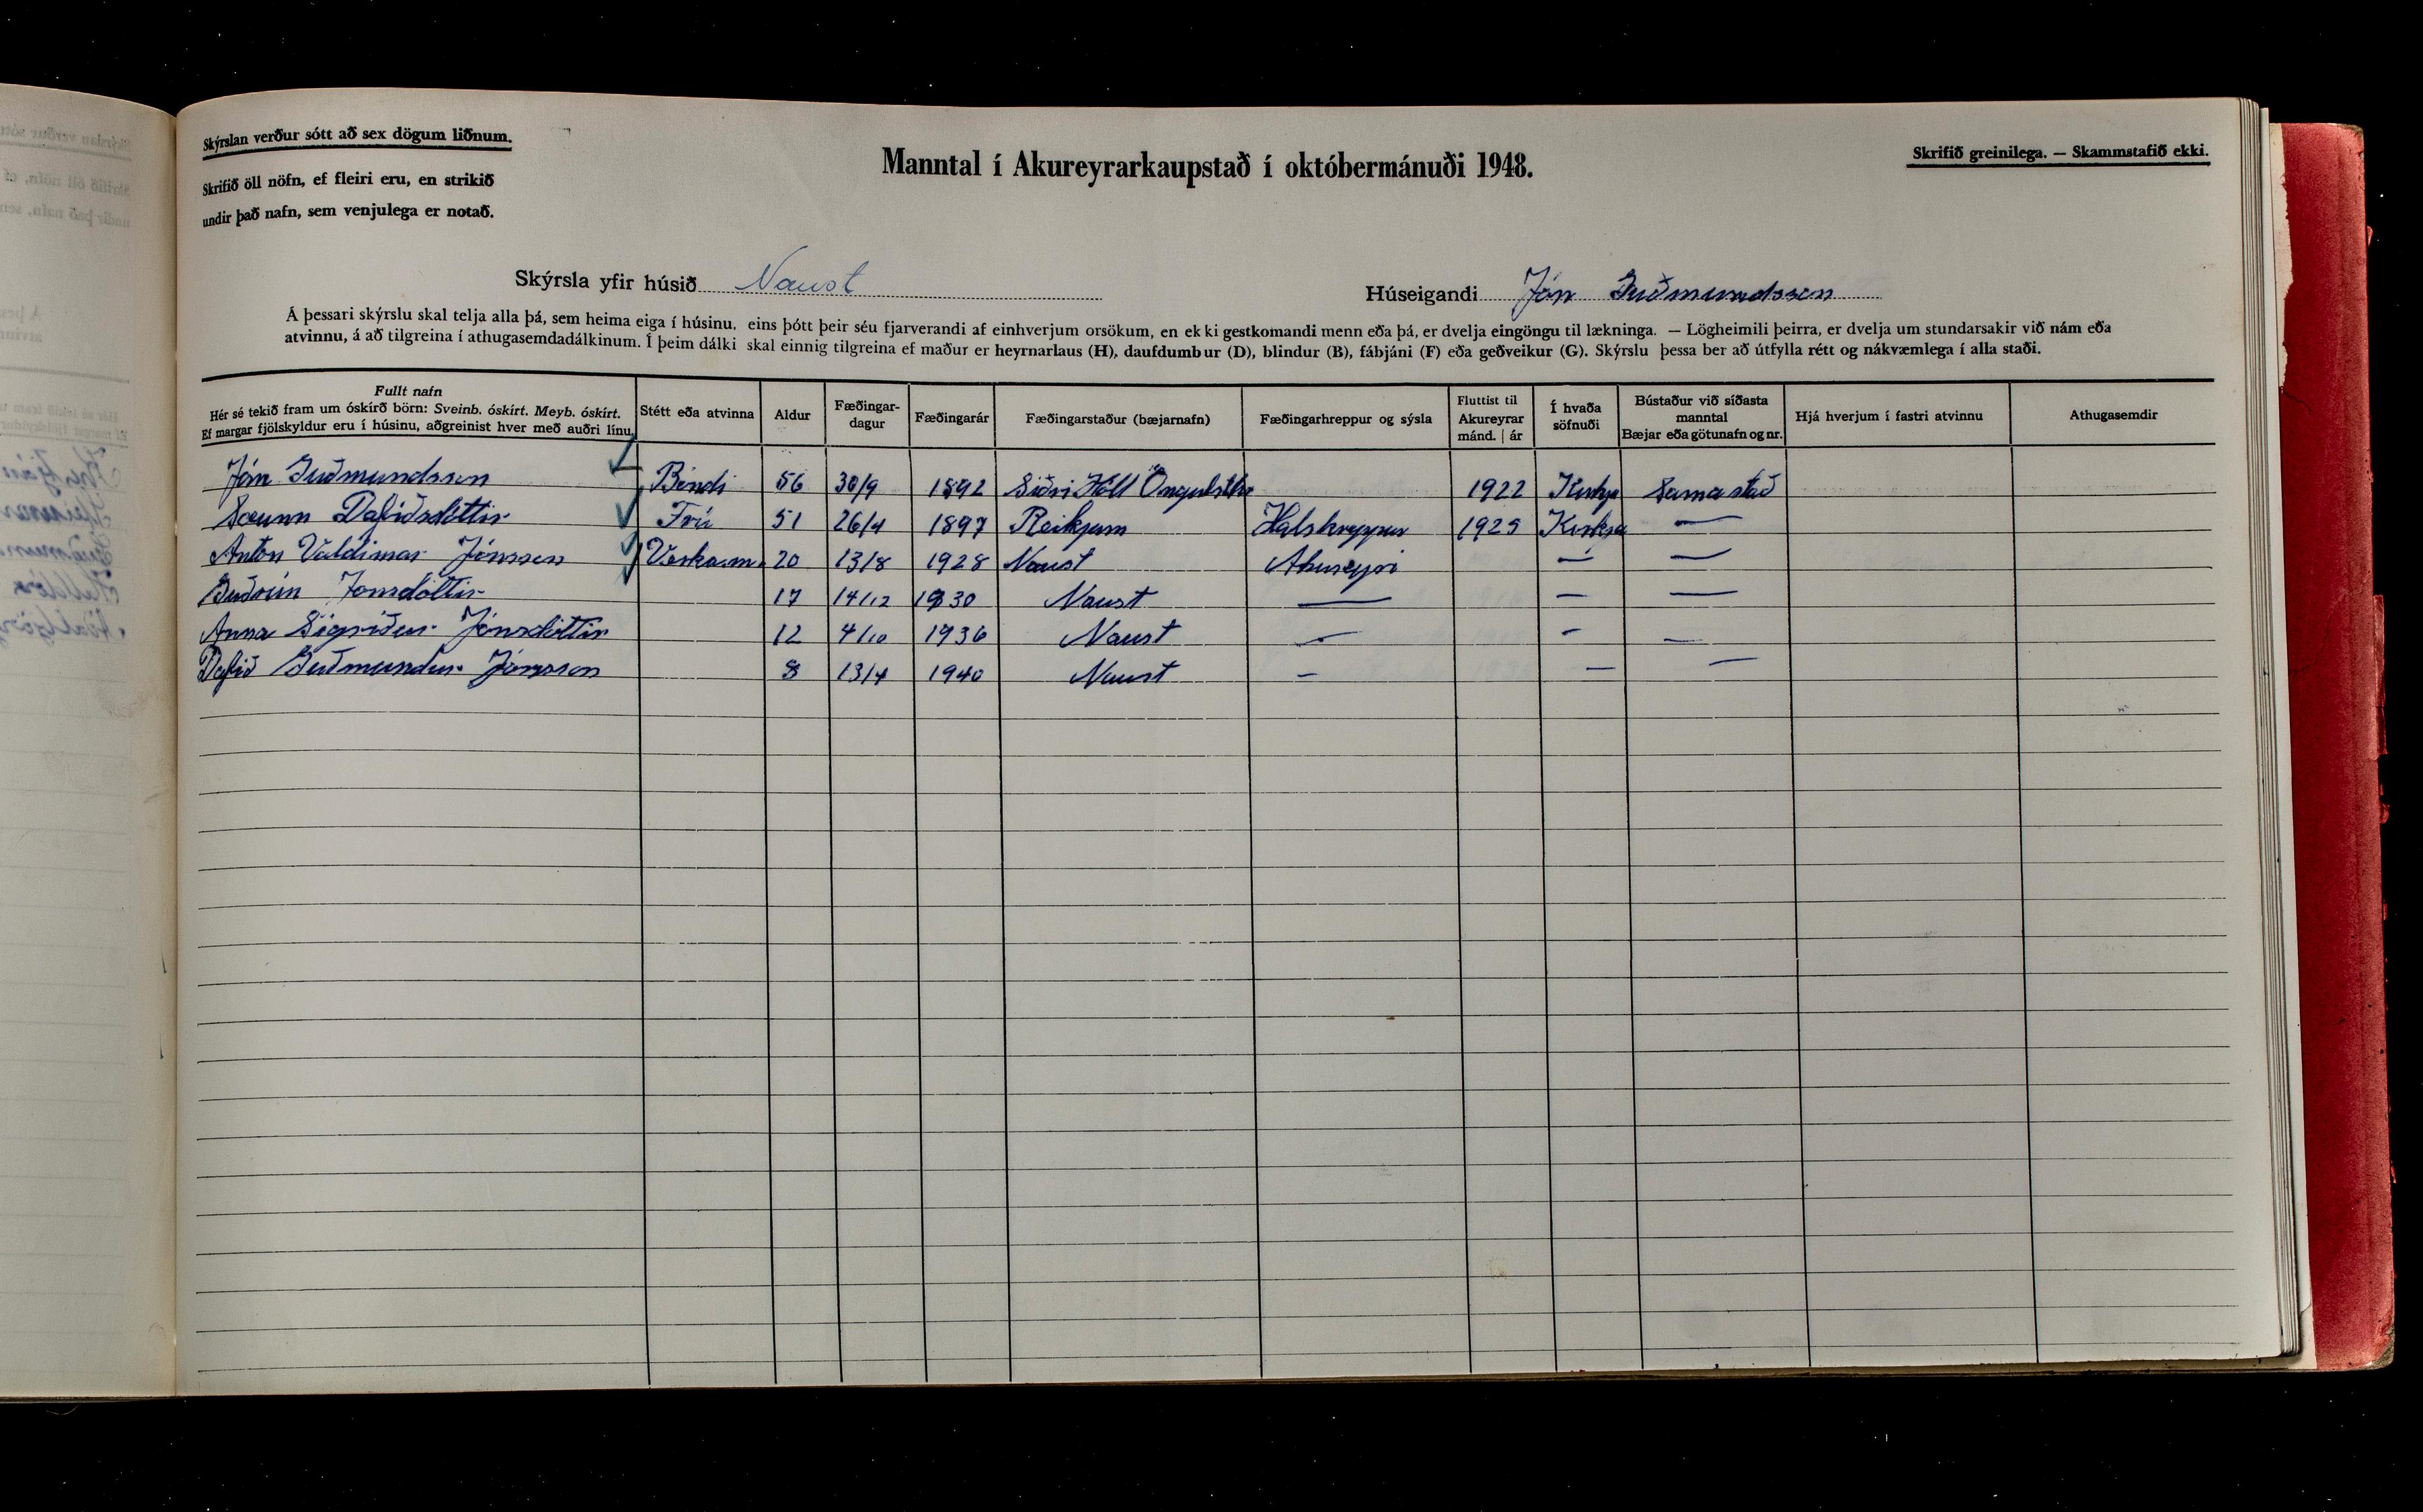 Skýrslan verður sótt að sex dögum liðnum.
Skrifið öll nöfn, ef fleiri eru, en strikið
undir það nafn, sem venjulega er notað.
Manntal í Akureyrarkaupstað í októbermánuði 1948.
Skrifið greinilega. — Skammstafið ekki.
Skýrsla yfir húsið Naust
Húseigandi Jón Guðmundsson
Á þessari skýrslu skal telja alla þá, sem heima eiga í húsinu, eins þótt þeir séu fjarverandi af einhverjum orsökum, en ekki gestkomandi menn eða þá, er dvelja eingöngu til lækninga. — Lögheimili þeirra, er dvelja um stundarsakir við nám eða
atvinnu, á að tilgreina í athugasemdadálkinum. Í þeim dálki skal einnig tilgreina ef maður er heyrnarlaus (H), daufdumbur (D), blindur (B), fábjáni (F) eða geðveikur (G). Skýrslu þessa ber að útfylla rétt og nákvæmlega í alla staði.
Fullt nafn
Hér sé tekið fram um óskírð börn: Sveinb. óskírt. Meyb. óskírt.
Ef margar fjölskyldur eru í húsinu, aðgreinist hver með auðri línu.
Stétt eða atvinna
Aldur
Fæðingar-
dagur
Fæðingarár
Fæðingarstaður (bæjarnafn)
Fæðingarhreppur og sýsla
Fluttist til
Akureyrar
mánd. | ár
Í hvaða
söfnuði
Bústaður við síðasta
manntal
Bæjar eða götunafn og nr.
Hjá hverjum í fastri atvinnu
Athugasemdir
Jón Guðmundsson Bóndi 56 30/9 1892 Siðri Hóll Öngulsthr 1922 Kirkju Sama stað
Sæunn Dafíðsdóttir Frú 51 26/4 1897 Reikjum Halshreppur 1925 Kirkju —
Anton Valdimar Jónsson Verkam. 20 13/8 1928 Naust Akureyri — —
Guðrún Jonsdóttir 17 14/12 1930 Naust — — —
Anna Sigriður Jónsdóttir 12 4/10 1936 Naust — — —
Dafið Guðmundur Jónsson 8 13/4 1940 Naust — — —